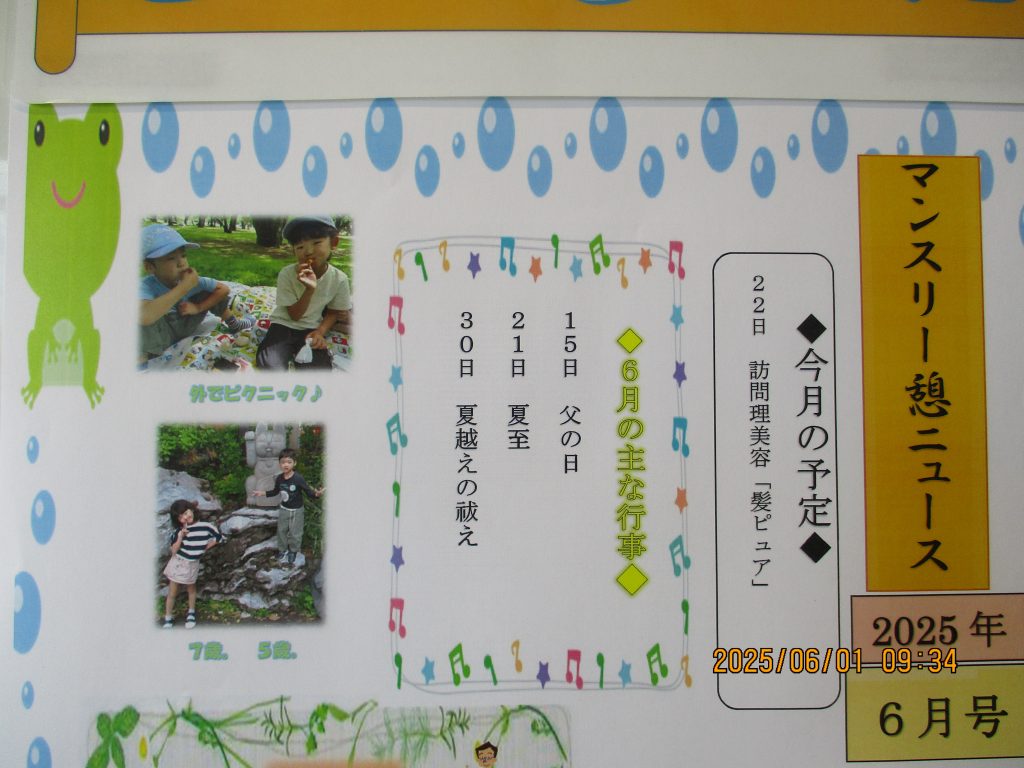 マンスリー憩ニュース
2025年
6月号
◆今月の予定◆
22日 訪問理美容「髪ピュア」
◆6月の主な行事◆
15日 父の日
21日 夏至
30日 夏越えの祓え
外でピクニック♪
7歳。 5歳。
2025/06/01 09:34